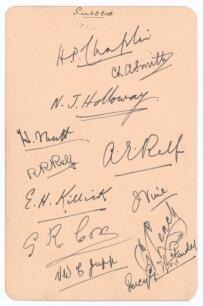 Sussex
H.P. Chaplin
C.L.A. Smith
N.J. Holloway
H. Butt
A.E. Relf
R.R. Relf
E.H. Killick
J Vine
G R Cox
V W C Jupp